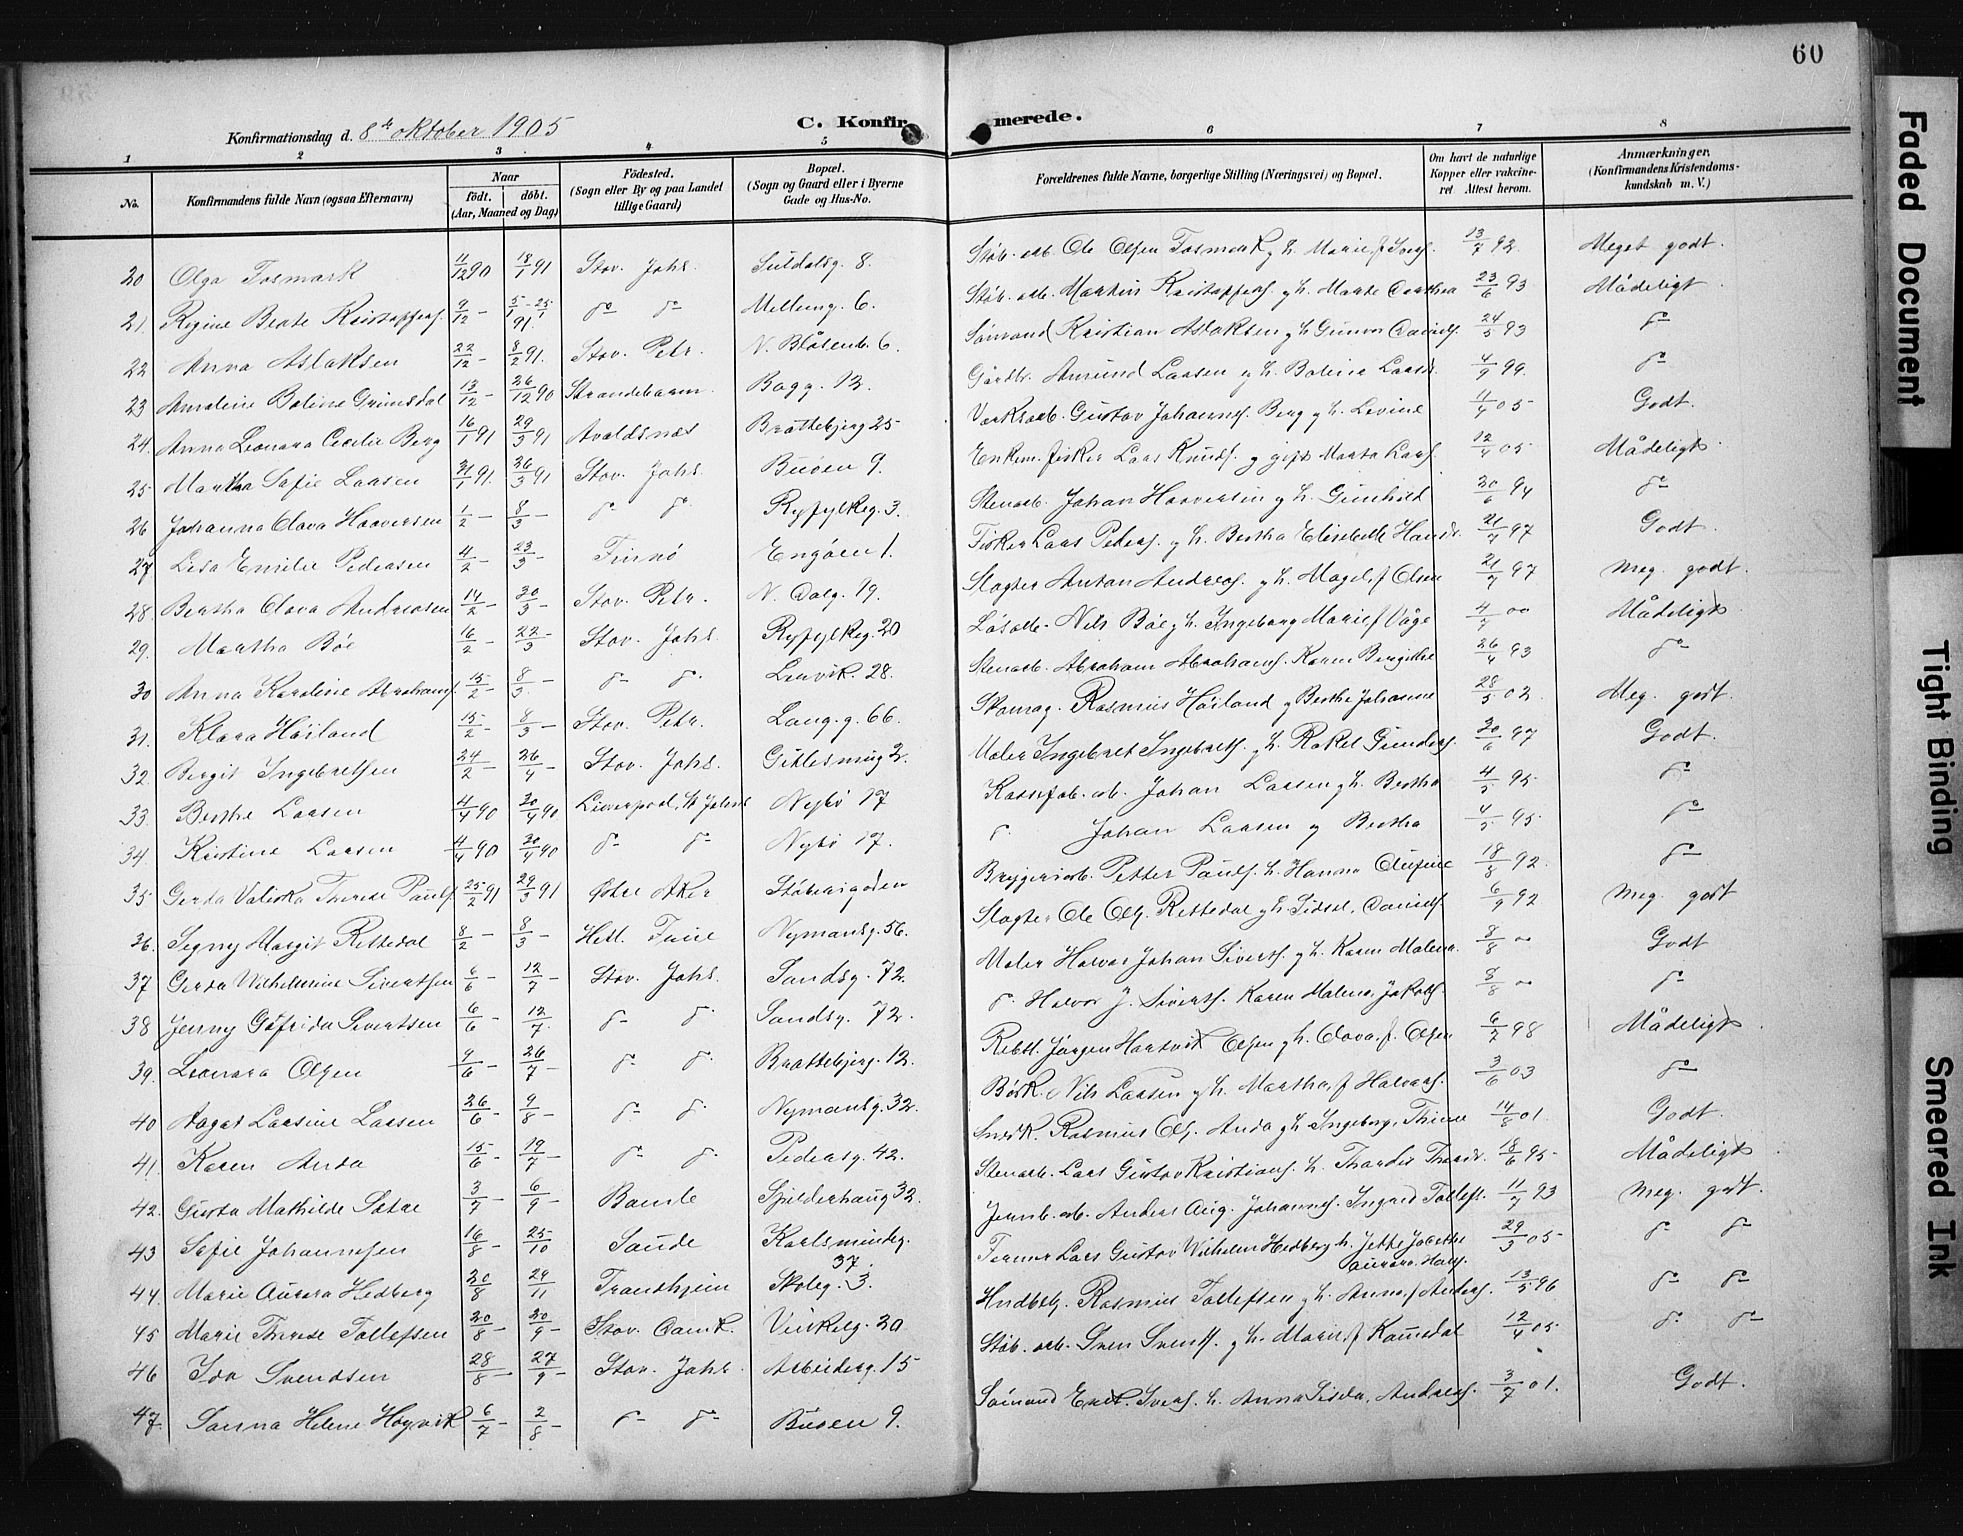 60
Konfirmationsdag d. 8de oktober 1905
C. Konfirmerede.
1 2 3 4 5 6 7 8
No.
Konfirmandens fulde Navn (ogsaa Efternavn)
Naar
født. døbt.
(Aar, Maaned og Dag)
Fødested.
(Sogn eller By og paa Landet
tillige Gaard)
Bopæl.
(Sogn og Gaard eller i Byerne
Gade og Hus-No.
Forældrenes fulde Navne, borgerlige Stilling (Næringsvei) og Bopæl.
Om havt de naturlige
Kopper eller vakcine-
ret Attest herom.
Anmærkninger.
(Konfirmandens Kristendoms-
kundskab m. V.)
20 Olga Fosmark 11/12 90 18/1 91 Stav. Johs. Suldalsg. 8. Støb. arb. Ole Olsen Fosmark g h. Marie f. 13/7 92. Meget godt.
21. Regine Beate Kristoffers. 9/12 - 91. do do Mellemg. 6. Støb. arb. Martin Kristoffers. g h. Marte 23/6 93 Mådeligt
22 Anna Aslaksen 22/12 - 8/2 91. Stav. Petr. N. Blåsenb. 6. Sømand Kristian Aslaksen g h. 24/5 93 do
23 Amalene Boline Grimsdal 13/12 - 26/12 90 Strandebarm Bagg. 12. Gårdbr. Amund Larsen g h. Boline 4/9 99. do
24. Anna Leonara Cecilie Berg 16/1 91 29/3 91 Avaldsnæs Brattebjerg 25 Gustav Johanns. Berg g h. Levine 11/4 05 Godt.
25 Martha Sofie Larsen 31/1 91. 26/3 91 Stav. Johs. Buøen 9. Enkem. fisker Lars Knuds. g gift Marta Lars. 12/4 05 Mådeligt
26 Johanna Olava Haaversen 1/2 - 8/3 - do do Ryfylkeg. 3. Stenarb. Johan Haaversen g h. Gunhild 20/6 94 do
27 Lisa Emilie Pedersen 4/2 - 23/3 - Finnø Engøen 1. Fisker Lars Peders. g h. Bertha Elisabeth 21/7 97 Godt.
28 Bertha Olava Andreasen 14/2 - 30/3 - Stav. Petr. N. Dalg. 19. Slagter Anton Andreas. g h. f. Olsen 21/7 97 Meg. godt.
29. Martha Bøe 16/2 - 22/3 - Stav. Johs. Ryfylkeg. 20 Nils Bøe g h. Ingeborg Marie f. Våge 4/7 00 Mådeligt
30 Anna Karoline Abrahams. 15/2 - 8/3 - do do Lervik. 28. Stenarb. Abraham Abrahams. Karen Bergitte 26/4 93 do
31. Klara Høiland 15/2 - 8/3 - Stav. Petr. Lang. g. 66. Skomag. Rasmus Høiland g Berthe Johanne 28/5 02. Meg. godt.
32 Bergit Ingebretsen 24/2 - 26/4 - Stav. Johs. 2. Maler Ingebret Ingebrets. g h. Rakel Gunders. 30/6 97 Godt.
33. Berthe Larsen 4/4 90 20/4 90 Liverpool, Nybø 17 Johan Larsen g h. Bertha 4/5 95 do
34 Kristine Larsen 4/4 90 20/4 90 do do Nybø 17. do Johan Larsen g Bertha 4/5 95 do
35 Gerda Valeska Therese Pauls. 25/2 91 29/3 91 Østre Aker Støberigaden Bryggeriarb. Petter Pauls. h. Hanna 18/8 92. do
36. Segny Margit Rettedal 8/2 - 8/3 - Hetl. Frue Nymansg. 56. Slagter Ole Ols. Rettedal g h. Sidsel, Daniels 6/9 92 Meg. godt
37 Gerda Wilhelmine Sivertsen 6/6 - 12/7 - Stav. Johs. Sandsg. 72. Maler Halvor Johan Siverts. g h. Karen Malena. 8/8 00 Godt
38 Jenny Gøfrida Sivertsen 6/6 - 12/7 - do do Sandsg. 72. do. Halvor J. Siverts. Karen Malena, Jakobs. 8/8 00 do
39. Leonara Olsen 9/6 - 26/7 - do do Brattebjerg. 12. Rebsl. Jørgen Hartvik Olsen g h. Olava, f. Olsen 6/7 98 Mådeligt
40 Aagot Larsine Larsen 26/6 - 9/8 - do do Nymansg. 32. Bøsk. Nils Larsen g h. Martha, f. Halvars. 3/6 03 do
41. Karen Anda 15/6 - 19/7 - do do Pedersg. 42. Snedk. Rasmus Ols. Anda g h. Ingeborg, 14/8 01. Godt.
42. Gusta Mathilde Sætre 3/7 - 6/9 - Bamle Spilderhaug 32. Stenarb. Lars Gustav Kristians. h. 18/6 95 Mådeligt
43 Sofie Johannesen 16/8 - 25/10 Saude Karlsmindeg. 37. Jernb. arb. Anders Aug. Johanns. Ingrid Tollefs. 11/7 93 Meg. godt.
44. Marie Aurora Hedberg 20/8 29/11 Trondhjem Skoleg. 3. Former Lars Gustav Wilhelm Hedberg h. Jette Jobette Aurora, Hans. 29/3 05 do do
45 Marie Therese Tollefsen 20/8 - 20/9 - Stav. Domk. Virkelg. 20 Hndbtj. Rasmus Tollefsen g h. Anna, f. Anders. 13/5 96 do do
46 Ida Svendsen 28/8 - 27/9 - Stav. Johs. Arbeiderg. 15 Støb. arb. Sven Svends. g h. Marie, f. Kamsdal 12/4 05. do do
47. Sanna Helene Høyvik 6/7 - 2/8 - do do Buøen 9. Sømand h. Anna Andreas. 3/7 01. Godt.
Faded Document
Tight Binding
Smeared Ink